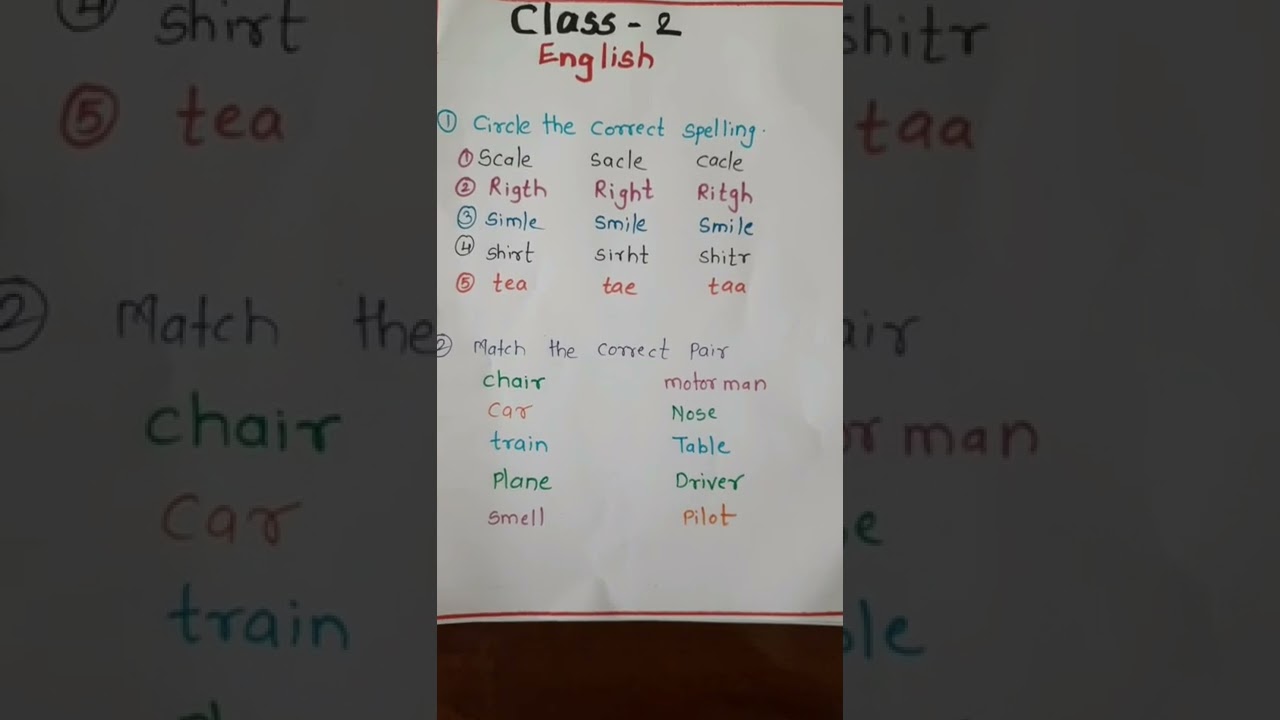 Class - 2
English
① Circle the correct spelling.
① Scale sacle cacle
② Rigth Right Ritgh
③ Simle smile smile
④ shirt sirht shitr
⑤ tea tae taa
② Match the correct pair
chair motor man
Car Nose
train Table
Plane Driver
smell Pilot